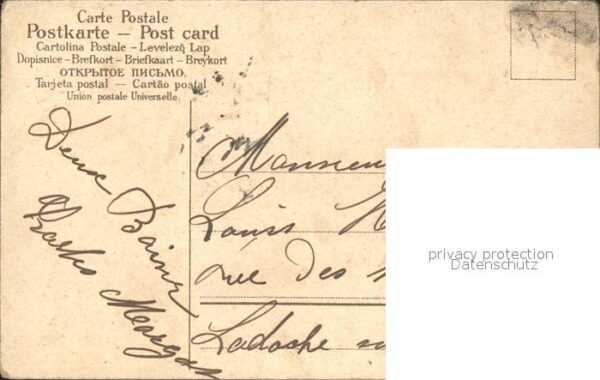 Carte Postale
Postkarte — Post card
Cartolina Postale – Levelező Lap
Dopisnice – Brefkort – Briefkaart – Brevkort
ОТКРЫТОЕ ПИСЬМО.
Tarjeta postal — Cartão postal
Union postale Universelle.
Deux
Monsieur
Louis
rue des
Ladoche
privacy protection
Datenschutz